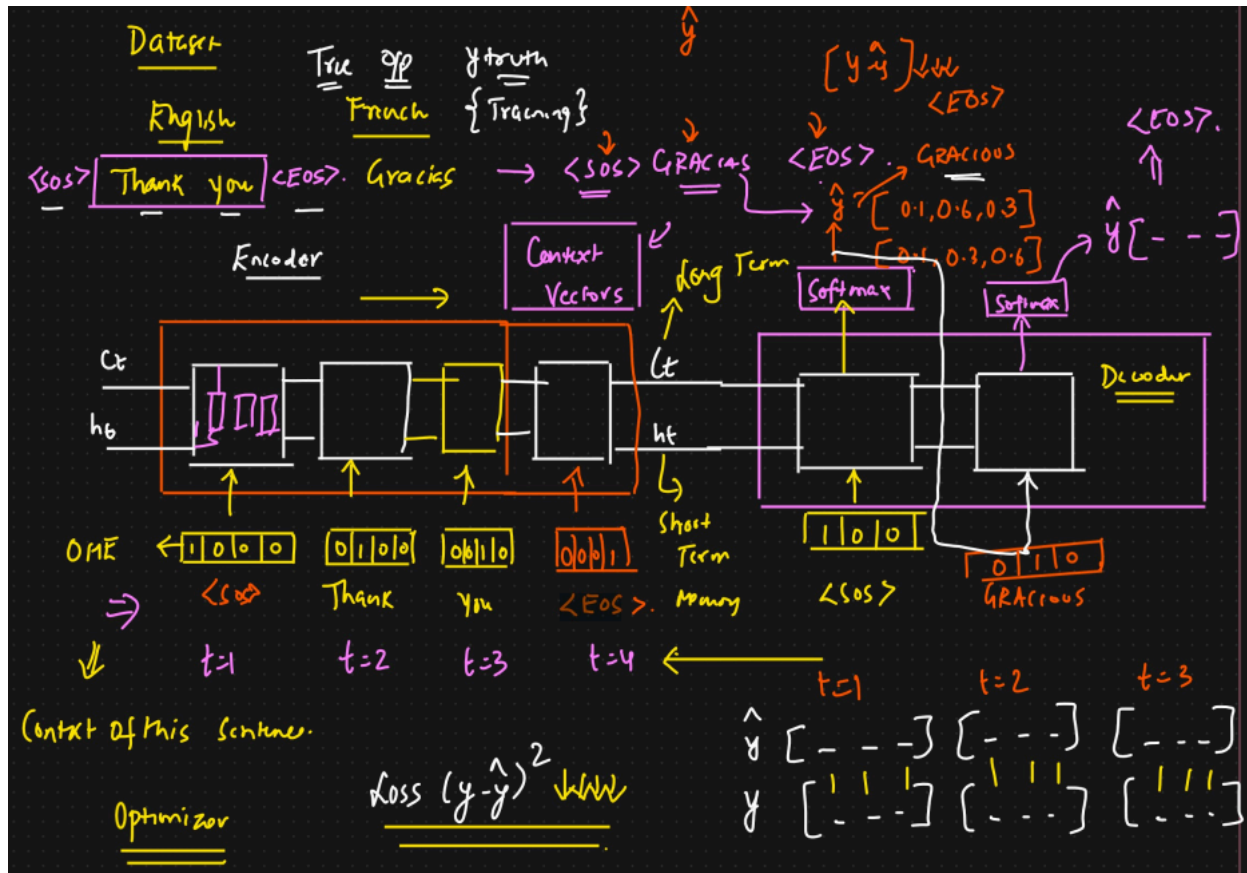 ŷ
Dataset
True o/p y truth
[y ŷ]
<EOS>
English French {Training}
<EOS>.
<SOS> Thank you <EOS>. Gracias → <SOS> GRACIAS <EOS>. GRACIOUS
ŷ [0.1, 0.6, 0.3]
ŷ [- - -]
[0.1, 0.3, 0.6]
Encoder
Context
Vectors
Long Term
Softmax
Softmax
Ct
Ct
Decoder
ht
Short
Term
Memory
OHE
1 0 0 0
0 1 0 0
0 0 1 0
0 0 0 1
1 0 0
0 1 0
<SOS> Thank you <EOS>. <SOS> GRACIOUS
t=1 t=2 t=3 t=4
t=1 t=2 t=3
Context of this sentence.
ŷ [- - -] [- - -] [- - -]
Loss (y-ŷ)²
y [- - -] [- - -] [- - -]
Optimizor